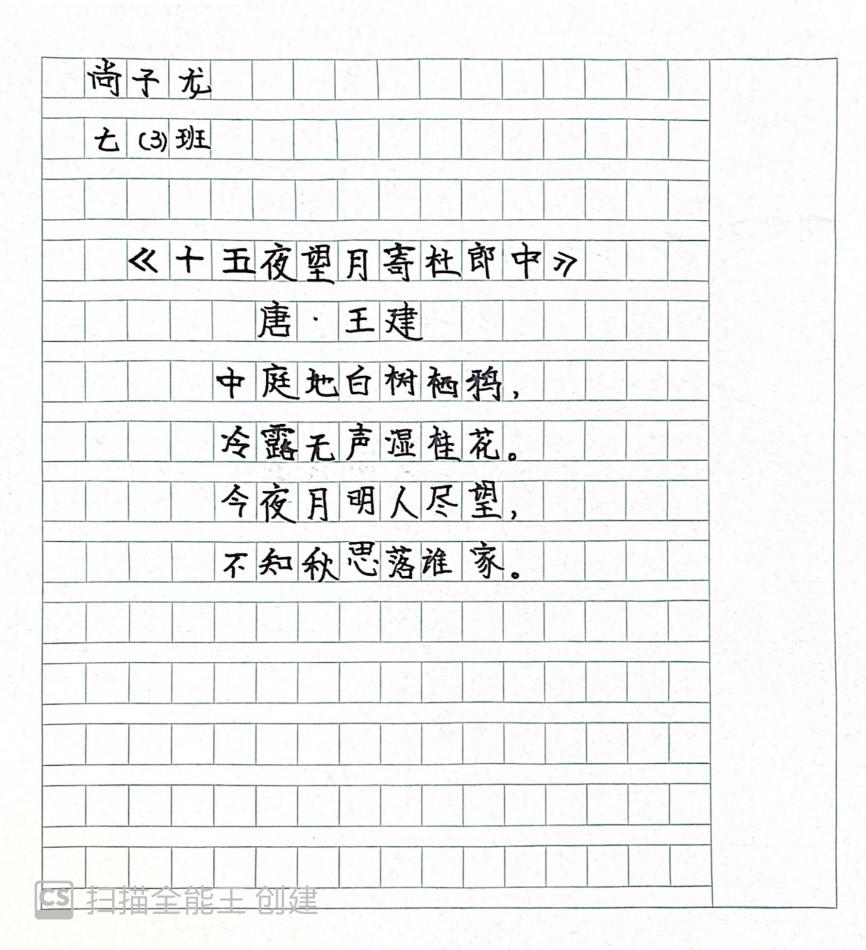 尚子龙
七(3)班
《十五夜望月寄杜郎中》
唐·王建
中庭地白树栖鸦,
冷露无声湿桂花。
今夜月明人尽望,
不知秋思落谁家。
CS 扫描全能王 创建